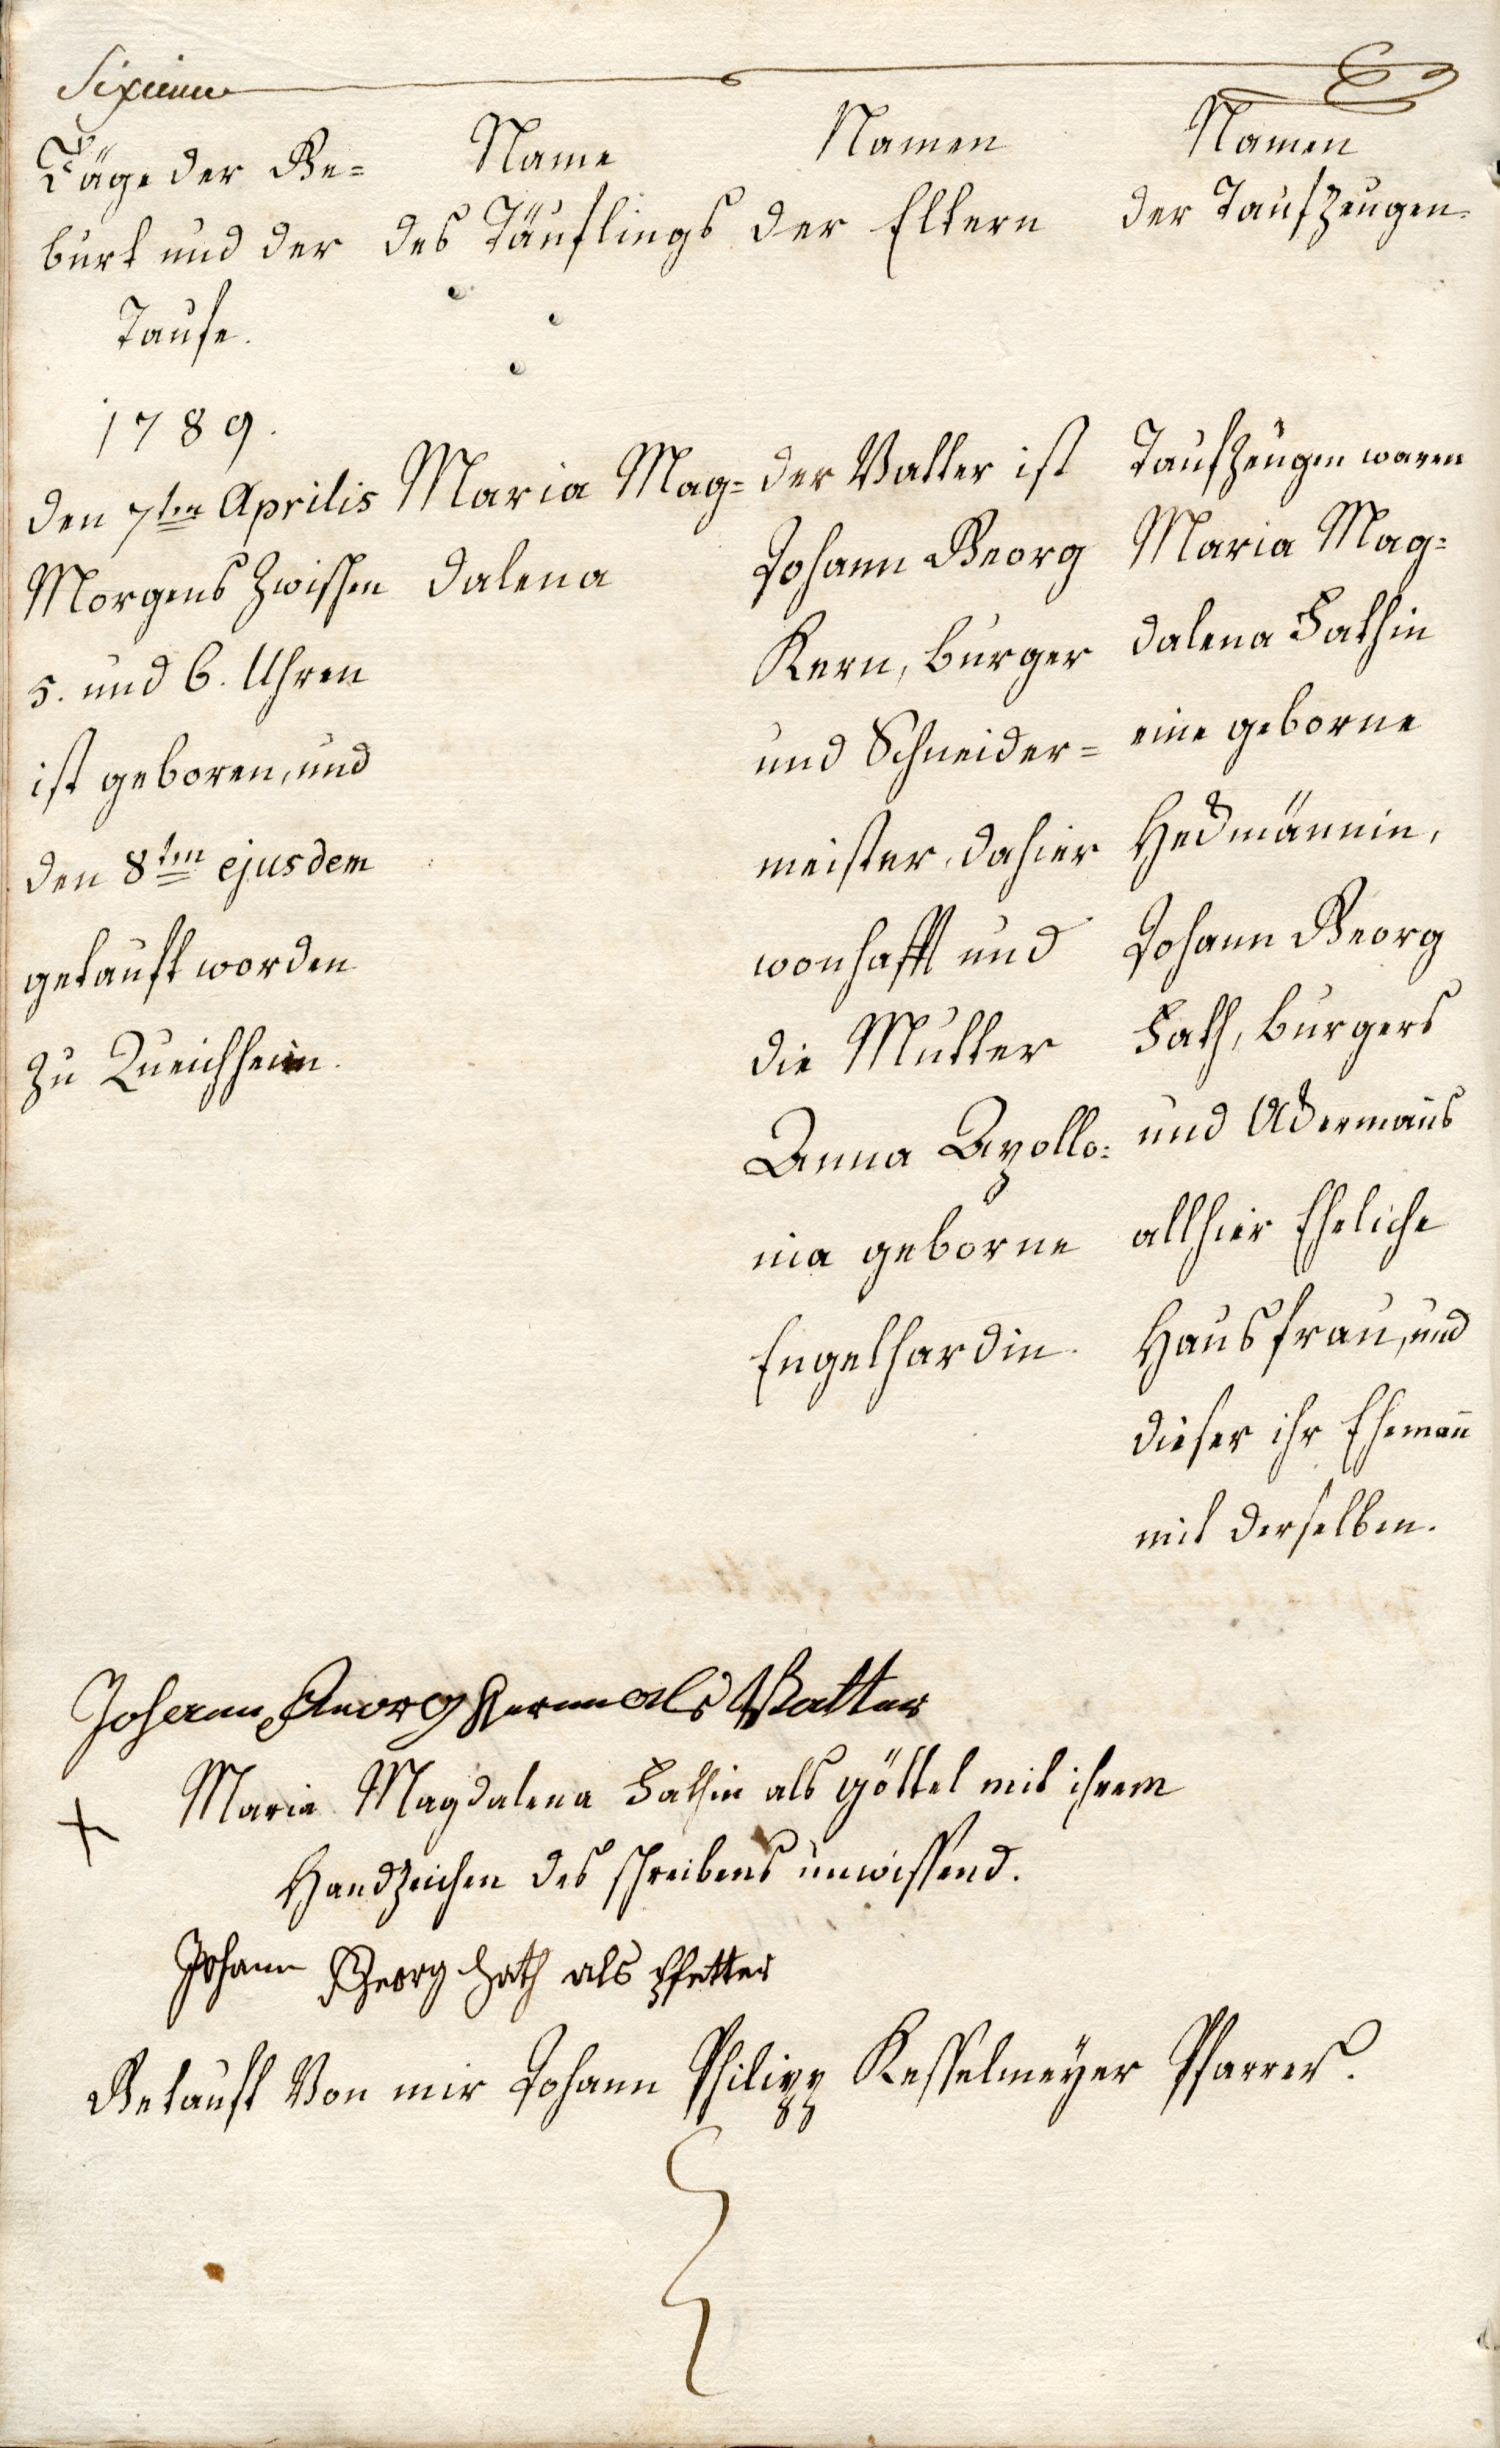 Sixieme
Täge der Ge=
burt und der
Taufe.
Name
des Täuflings
Namen
der Eltern
Namen
der Taufzeugen.
1789.
den 7ten Aprilis
Morgens zwischen
5. und 6. Uhren
ist geboren, und
den 8ten ejusdem
getauft worden
zu Queichheim.
Maria Mag=
dalena
der Vatter ist
Johann Georg
Kern, burger
und Schneider=
meister, dahier
wonhafft und
die Mutter
Anna Apollo=
nia geborne
Engelhardin.
Taufzeugen waren
Maria Mag=
dalena Fathin
eine geborne
Heckmännin,
Johann Georg
Fath, burgers
und Ackermans̄
allhier Eheliche
Hausfrau, und
dieser ihr Ehemañ
mit derselben.
Johann Georg Kern als Vatter
+ Maria Magdalena Fathin als Göttel mit ihrem
Handzeichen des schreibens unwissend.
Johann Georg Fath als Pfetter
Getauft von mir Johann Philipp Kesselmeÿer Pfarrer.